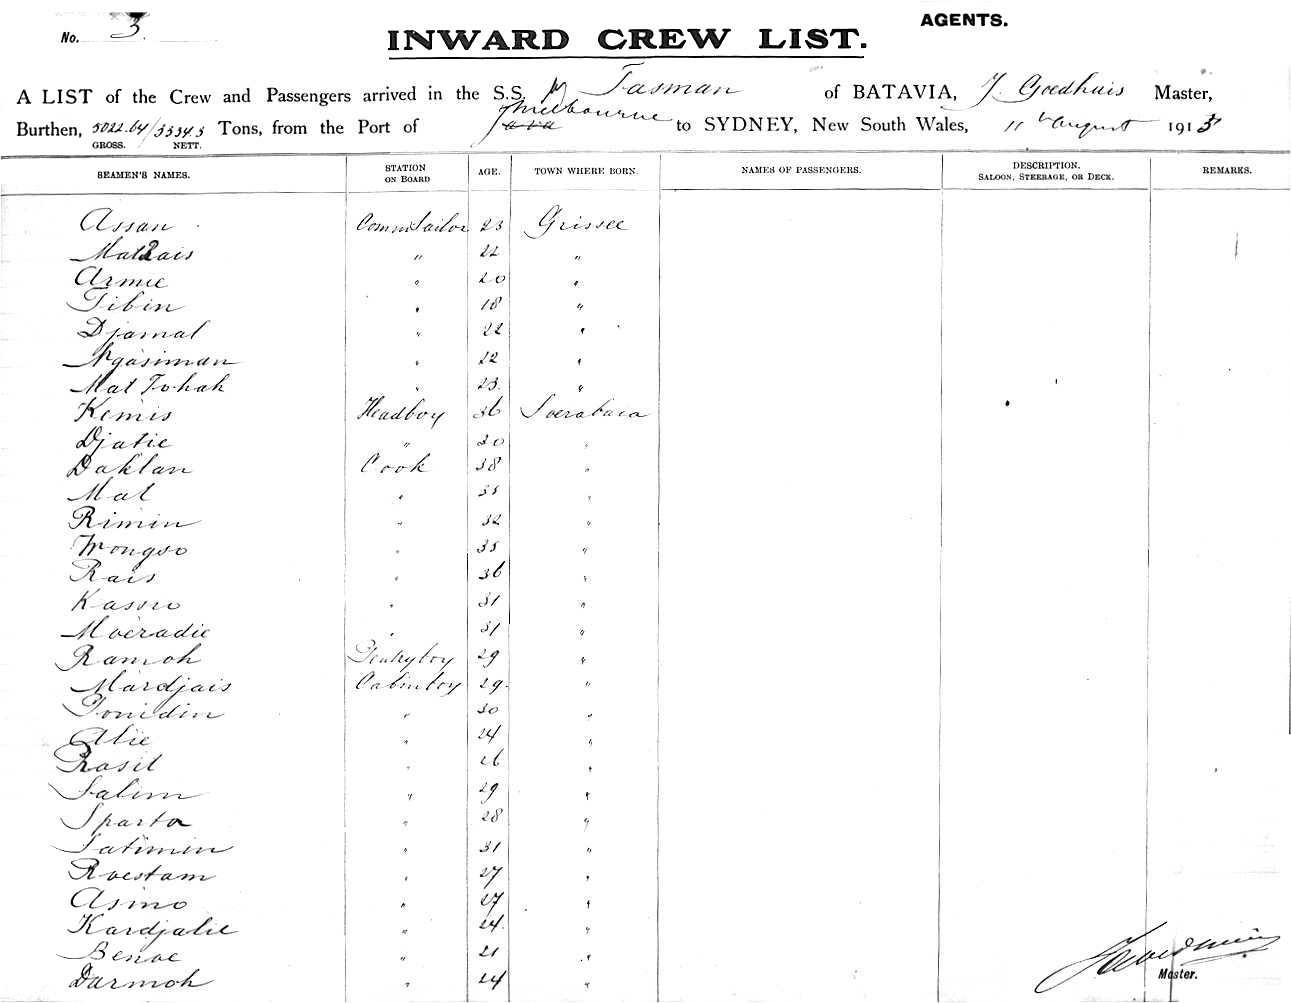 AGENTS.
No. 3.
INWARD CREW LIST.
A LIST of the Crew and Passengers arrived in the S.S. Tasman of BATAVIA, J. Goedhuis Master,
Burthen, 5022.64/3334.5 Tons, from the Port of Java Melbourne to SYDNEY, New South Wales, 11th August 1913
GROSS. NETT.
SEAMEN'S NAMES. STATION ON BOARD AGE. TOWN WHERE BORN. NAMES OF PASSENGERS. DESCRIPTION. SALOON, STEERAGE, OR DECK. REMARKS.
Assan Comm Sailor 23 Grissee
Matrais " 22 "
Armie " 20 "
Tibin " 18 "
Djamal " 22 "
Ngasiman " 22 "
Mat Tohah " 23 "
Kemis Headboy 36 Soerabaia
Djatie " 30 "
Dahlan Cook 38 "
Mat " 35 "
Rimin " 32 "
Wongso " 35 "
Rais " 36 "
Kassio " 31 "
Moeradie " 31 "
Ramoh 29 "
Mardjais Cabinboy 29 "
Tonidin " 30 "
Alie " 24 "
Rasil " 26 "
Salim " 29 "
Sparta " 28 "
Satimin " 31 "
Roestam " 27 "
Asmo " 27 "
Kardjalie " 24 "
Benoe " 21 "
Darmoh " 24 "
J Goedhuis
Master.